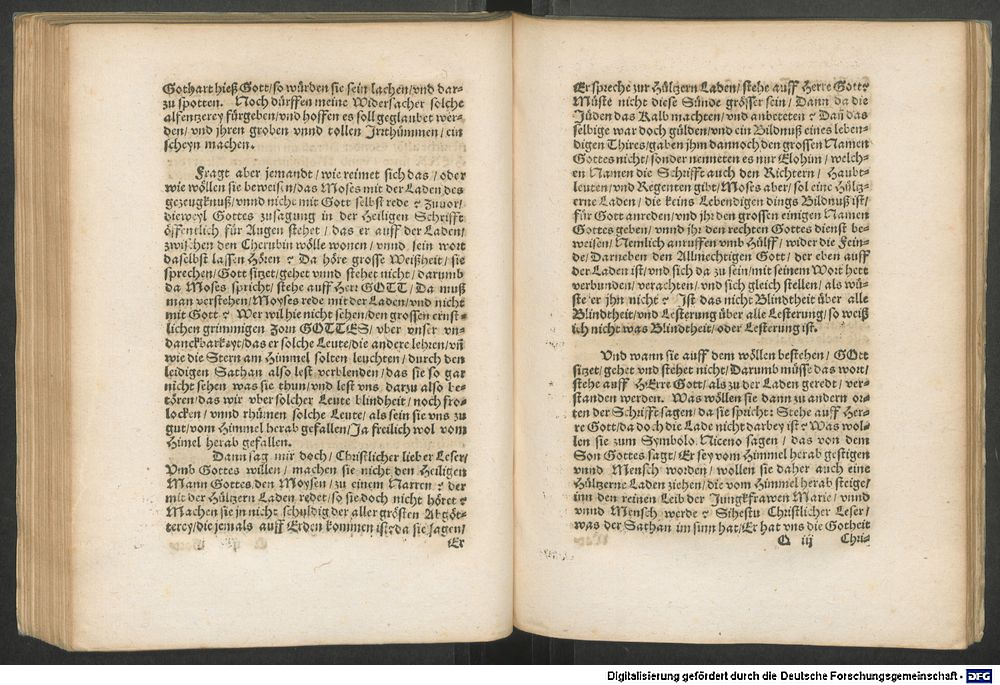 Gothart hieß Gott/ so würden sie sein lachen/ vnd dar-
zu spotten. Noch dürffen meine Widersacher solche
alfentzerey fürgeben/ vnd hoffen es soll geglaubet wer-
den/ vnd jhren groben vnnd tollen Irrthümmen/ ein
scheyn machen.
Fragt aber jemandt/ wie reimet sich das/ oder
wie wöllen sie beweisen/ das Moses mit der Laden des
gezeugknuß/ vnnd nicht mit Gott selbst rede? Zuuor/
dieweyl Gottes zusagung in der Heiligen Schrifft
öffentlich für Augen stehet/ das er auff der Laden/
zwischen den Cherubin wölle wonen/ vnnd sein wort
daselbst lassen Hören? Da höre grosse Weißheit/ sie
sprechen/ Gott sitzet/ gehet vnnd stehet nicht/ darumb
da Moses spricht/ stehe auff Herr GOTT/ Da muß
man verstehen/ Moyses rede mit der Laden/ vnd nicht
mit Gott? Wer wil hie nicht sehen/ den grossen ernst-
lichen grimmigen Zorn GOTTES/ vber vnser vn-
danckbarkeyt/ das er solche Leute/ die andere lehren/ vñ
wie die Stern am Himmel solten leuchten/ durch den
leidigen Sathan also lest verblenden/ das sie so gar
nicht sehen was sie thun/ vnd lest vns darzu also be-
tören/ das wir vber solcher Leute blindheit/ noch fro-
locken/ vnnd rhümen solche Leute/ als sein sie vns zu
gut/ vom Himmel herab gefallen/ Ja freilich wol vom
Himel herab gefallen.
Dann sag mir doch/ Christlicher lieber Leser/
Vmb Gottes willen/ machen sie nicht den Heiligen
Mann Gottes/ den Moysen/ zu einem Narren? der
mit der Hültzern Laden redet/ so sie doch nicht höret?
Machen sie jn nicht schuldig der aller grösten Abgöt-
terey/ die jemals auff Erden kommen ist? da sie sagen/
Er
Er spreche zur Hültzern Laden/ stehe auff Herre Gott?
Müste nicht diese Sünde grösser sein/ Dann da die
Jüden das Kalb machten/ vnd anbetteten? Dañ das
selbige war doch gülden/ vnd ein Bildnuß eines leben-
digen Thires/ gaben jhm dannoch den grossen Namen
Gottes nicht/ sonder nenneten es nur Elohim/ welch-
en Namen die Schrifft auch den Richtern/ Haubt-
leuten/ vnd Regenten gibt/ Moses aber/ sol eine Hültz-
erne Laden/ die keins Lebendigen dings Bildnuß ist/
für Gott anreden/ vnd jhr den grossen einigen Namen
Gottes geben/ vnnd jhr den rechten Gottes dienst be-
weisen/ Nemlich anruffen vmb Hülff/ wider die Fein-
de/ Darneben den Allmechtigen Gott/ der eben auff
der Laden ist/ vnd sich da zu sein/ mit seinem Wort hett
verbunden/ verachten/ vnd sich gleich stellen/ als wü-
ste er jhn nicht? Ist das nicht Blindtheit über alle
Blindtheit/ vnd Lesterung über alle Lesterung/ so weiß
ich nicht was Blindtheit/ oder Lesterung ist.
Vnd wann sie auff dem wöllen bestehen/ GOtt
sitzet/ gehet vnd stehet nicht/ Darumb müsse das wort/
stehe auff HErre Gott/ als zu der Laden geredt/ ver-
standen werden. Was wöllen sie dann zu andern or-
ten der Schrifft sagen/ da sie spricht: Stehe auff Her-
re Gott/ da doch die Lade nicht darbey ist? Was wol-
len sie zum Symbolo Niceno sagen/ das von dem
Son Gottes sagt/ Er sey vom Himmel herab gestigen
vnnd Mensch worden/ wollen sie daher auch eine
Hültzerne Laden ziehen/ die vom Himmel herab steige/
inn den reinen Leib der Jungkfrawen Marie/ vnnd
vnnd Mensch werde? Sihestu Christlicher Leser/
was der Sathan im sinn hat/ Er hat vns die Gotheit
Q iij Chri-
Digitalisierung gefördert durch die Deutsche Forschungsgemeinschaft - DFG